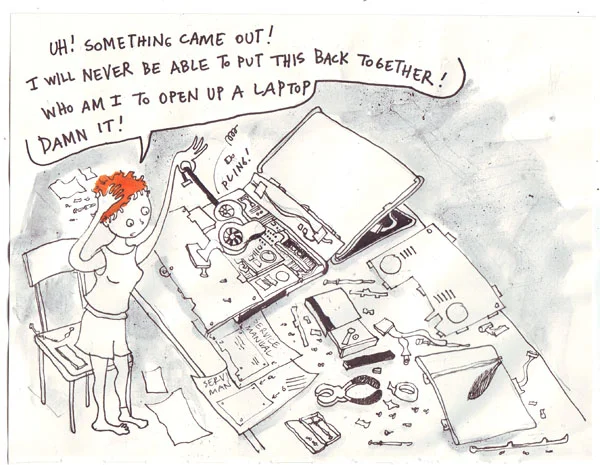 UH! SOMETHING CAME OUT!
I WILL NEVER BE ABLE TO PUT THIS BACK TOGETHER!
WHO AM I TO OPEN UP A LAPTOP
DAMN IT!
PLING!
SERVICE
MANUAL
SERV
MAN